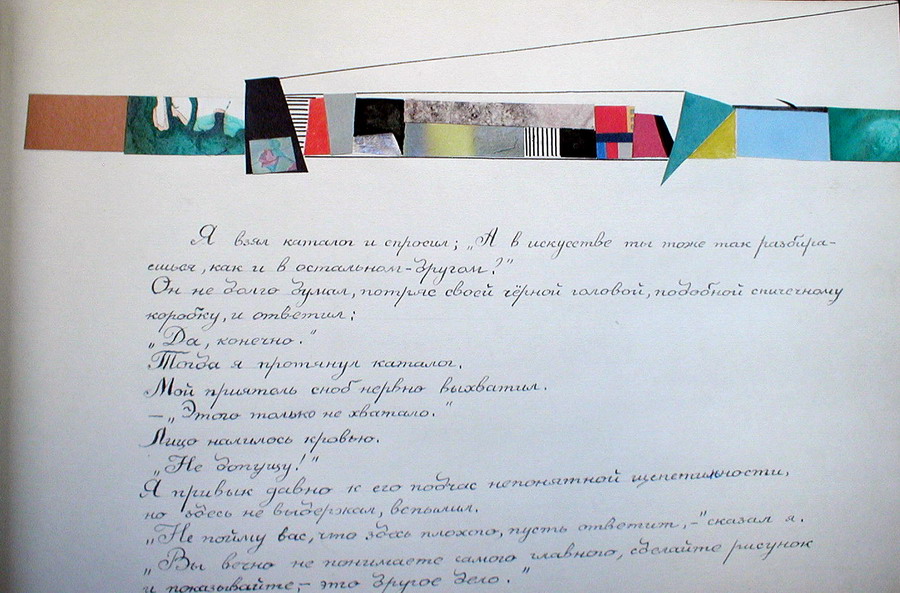 Я взял каталог и спросил; „А в искусстве ты тоже так разбира-
ешься, как и в остальном-другом?"
Он не долго думал, потряс своей чёрной головой, подобной спичечному
коробку, и ответил:
„Да, конечно."
Тогда я протянул каталог.
Мой приятель сноб нервно выхватил.
– „Этого только не хватало."
Лицо налилось кровью.
„Не допущу!"
Я привык давно к его подчас непонятной щепетильности,
но здесь не выдержал, вспылил.
„Не пойму вас, что здесь плохого, пусть ответит, –" сказал я.
„Вы вечно не понимаете самого главного, сделайте рисунок
и показывайте, – это другое дело."